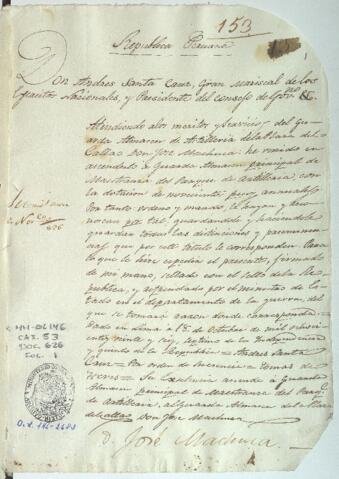 153
Republica Peruana
Don Andres Santa Cruz, Gran Mariscal de los
Exercitos Nacionales, y Presidente del Consejo de Gov.no &c.
Atendiendo alos meritos y servicios del Gu
arda Almacen de Artilleria dela Plaza del
Callao Don José Machuca: he venido en
ascenderlo a Guarda Almacen principal de
Maestranza del Parque de Artilleria con
la dotacion de novecientos pesos anuales
Por tanto, ordeno y mando, lo hayan y reco
nozcan por tal, guardandole y haciendole
guardar todas las distinciones y preeminen
cias que por este titulo le corresponden. Para
lo que le hize expedir el presente, firmado
de mi mano, sellado con el sello dela Re
publica, y refrendado por el ministro de Es
tado en el departamento dela guerra, del
que se tomará razon donde corresponda.
Dado en Lima á 18 de Octubre de mil ochoci
entos veinte y seis, septimo de la Independencia
y quinto dela Republica = Andres Santa
Cruz = Por orden de Su Excelencia = Tomas de
Heres = Su Excelencia asciende á Guarda
Almacen principal de Maestranza del Parq.e
de Artilleria, al Guarda Almacen dela Plaza
del Callao Don José Machuca
D. José Machuca
MH-OL146
CAJ. 53
DOC. 626
FOL. 1
O.L. 146-2600